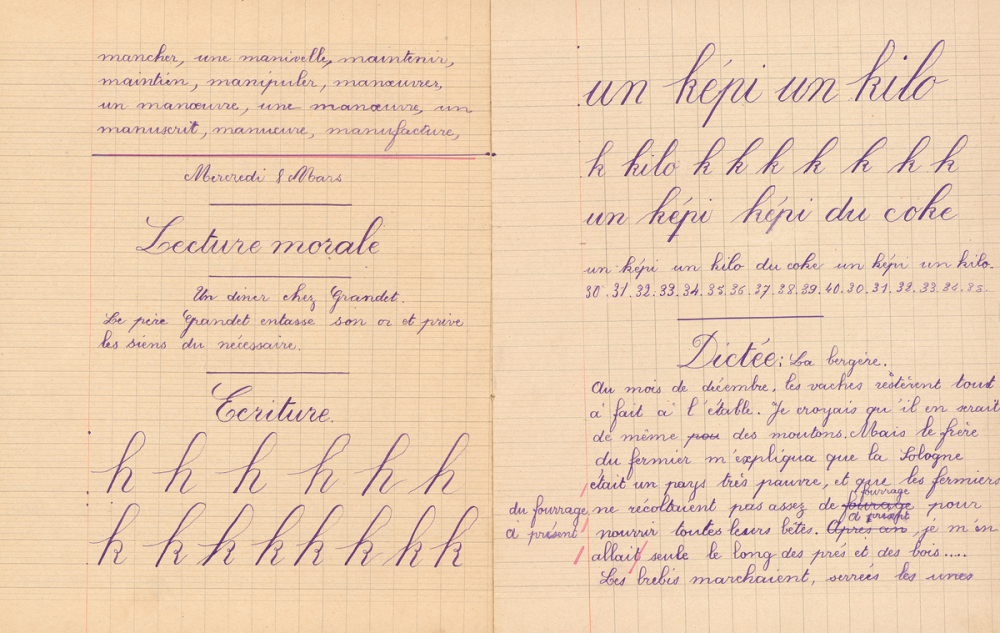 mancher, une manivelle, maintenir,
maintien, manipuler, manœuvrer,
un manœuvre, une manœuvre, un
manuscrit, manucure, manufacture,
Mercredi 8 Mars
Lecture morale
Un diner chez Grandet.
Le père Grandet entasse son or et prive
les siens du nécessaire.
Ecriture.
h h h h h h
k k k k k k k k
un képi un kilo
k kilo k k k k k k k
un képi képi du coke
un képi un kilo du coke un képi un kilo.
30.31.32.33.34.35.36.37.38.39.40.30.31.32.33.34.35.
Dictée: La bergère.
Au mois de décembre, les vaches restèrent tout
à fait à l'étable. Je croyais qu'il en serait
de même pou des moutons. Mais le frère
du fermier m'expliqua que la Sologne
était un pays très pauvre, et que les fermiers
fourrage
du fourrage, ne récoltaient pas assez de fourage pour
à présent
à présent nourrir toutes leurs bêtes. Après an je m'en
allait seule le long des prés et des bois.....
Les brebis marchaient, serrées les unes